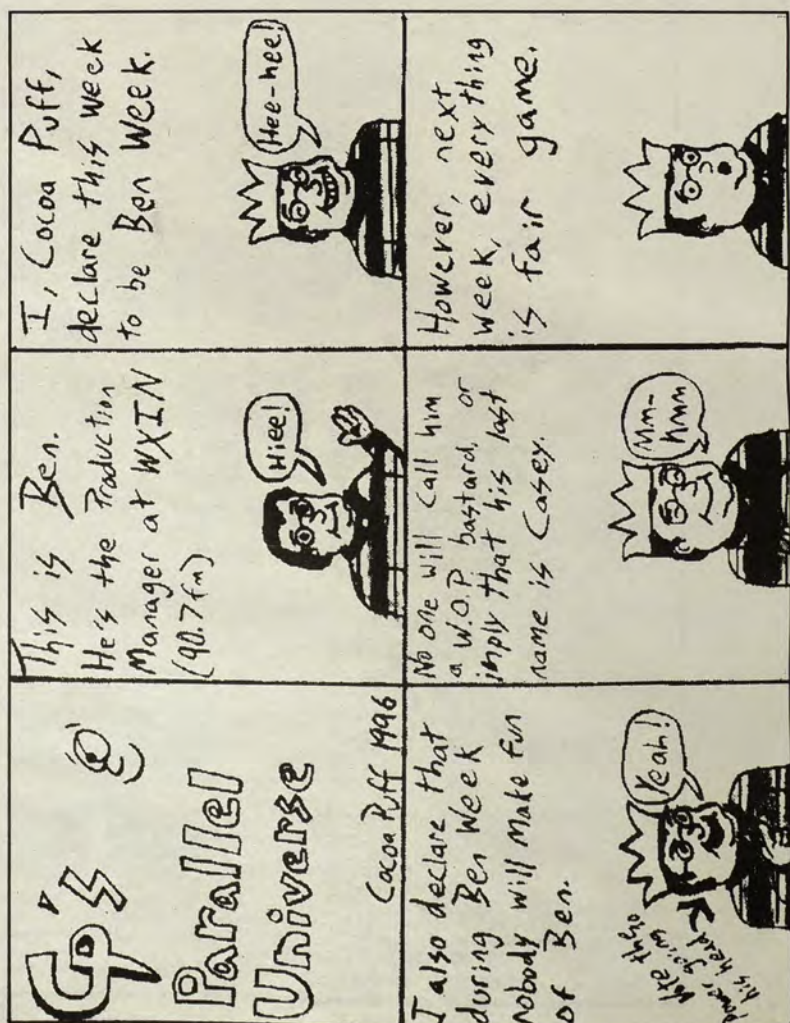 CP's
Parallel
Universe
Cocoa Puff 1996
This is Ben.
He's the Production
Manager at WXIN
(90.7 fm)
Hiee!
I, Cocoa Puff,
declare this week
to be Ben Week.
Hee-hee!
I also declare that
during Ben Week
nobody will make fun
of Ben.
power going
his head
Yeah!
No one will call him
a W.O.P. bastard, or
imply that his last
name is Casey.
Mm-
hmm
However, next
week, everything
is fair game.